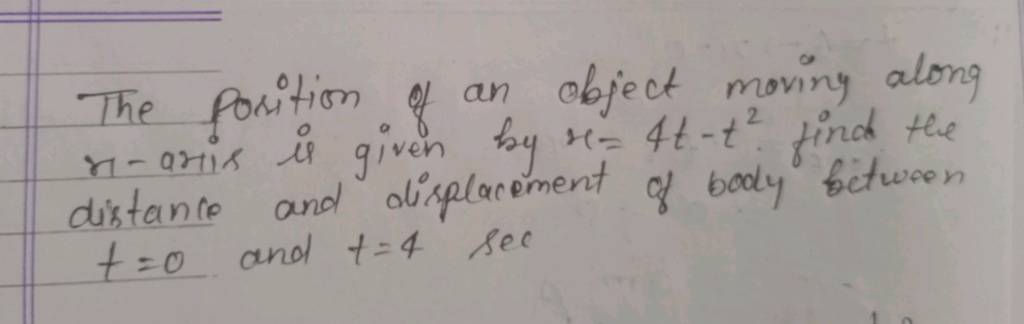 The position of an object moving along
x-axis is given by x = 4t - t². find the
distance and displacement of body between
t = 0 and t = 4 sec